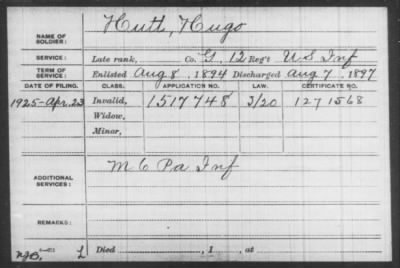 Hutt, Hugo
NAME OF SOLDIER:
SERVICE: Late rank, Co. G, 12 Reg't U S Inf
TERM OF SERVICE: Enlisted Aug 8, 1894 Discharged Aug 7, 1897
DATE OF FILING. CLASS. APPLICATION NO. LAW. CERTIFICATE NO.
1925-Apr. 23 Invalid, 1517748 3/20 1271568
Widow,
Minor,
ADDITIONAL SERVICES: M C Pa Inf
REMARKS:
Died , 1 , at